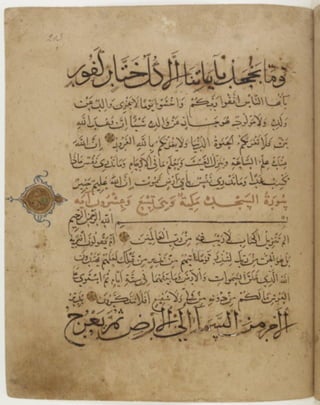 وما يجحد بآياتنا إلا كل ختار كفور
يا أيها الناس اتقوا ربكم واخشوا يوما لا يجزي والد عن
ولده ولا مولود هو جاز عن والده شيئا إن وعد الله
حق فلا تغرنكم الحيوة الدنيا ولا يغرنكم بالله الغرور إن الله
عنده علم الساعة وينزل الغيث ويعلم ما في الأرحام وما تدري نفس ماذا
تكسب غدا وما تدري نفس بأي أرض تموت إن الله عليم خبير
سورة السجدة مكية وهي تسع وعشرون آية
بسم الله الرحمن الرحيم
الم تنزيل الكتاب لا ريب فيه من رب العالمين أم يقولون افتريه
بل هو الحق من ربك لتنذر قوما ما أتيهم من نذير من قبلك لعلهم يهتدون
الله الذي خلق السموات والأرض وما بينهما في ستة أيام ثم استوى على
العرش ما لكم من دونه من ولي ولا شفيع أفلا تتذكرون يدبر
الأمر من السماء إلى الأرض ثم يعرج